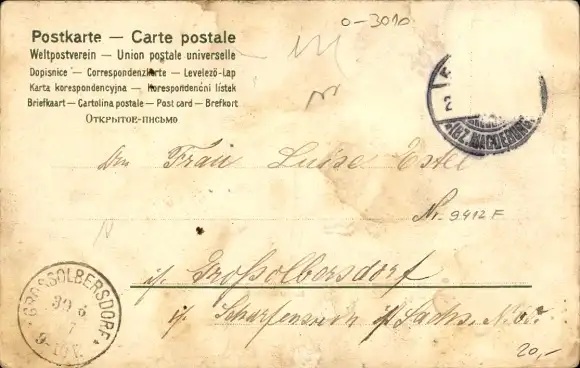 o-3010
Postkarte — Carte postale
Weltpostverein — Union postale universelle
Dopisnice — Correspondenzkarte — Levelező-Lap
Karta korespondencyjna — Korespondenční lístek
Briefkaart — Cartolina postale — Post card — Brefkort
Открытое-письмо
(BZ. MAGDEBURG)
Frau Luise
Nr. 9412 F
Großolbersdorf
GROSSOLBERSDORF
30 6
7
Scharfenstein
20,-